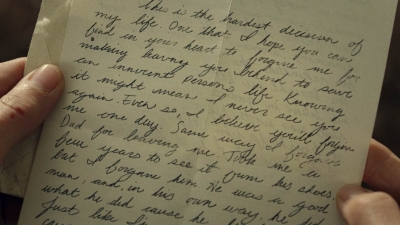 the is the hardest decision of
my life. One that I hope you can
find in your heart to forgive me for
making. Leaving you behind to save
an innocent person's life. Knowing
it might mean I never see you
again. Even so, I believe you'll forgive
me one day. Same way I forgave
Dad for leaving me. Took me a
few years to see it from his shoes.
but I forgave him. He was a good
man, and, in his own way, he did
what he did cause he
just like I